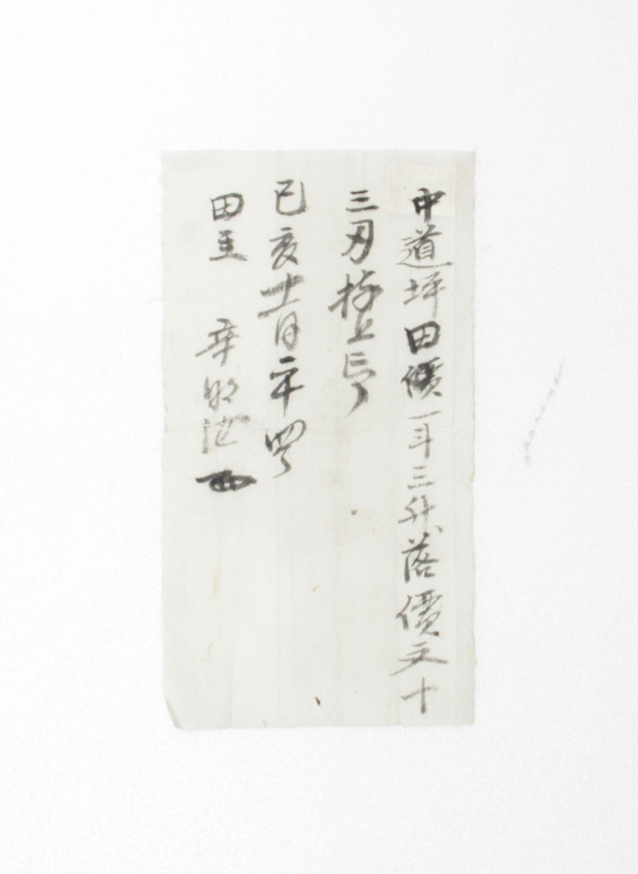 中道坪田價一斗三升落價文十
三刃捧上印
己亥十二月二十四日
田主 辛